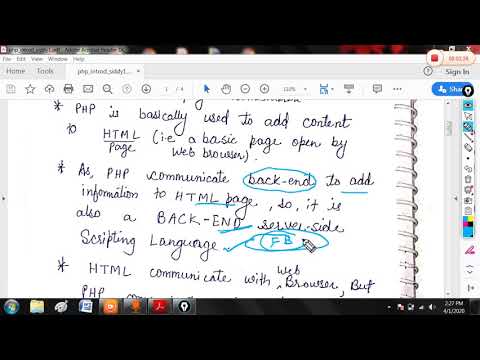 php_introd_siddy1.pdf - Adobe Acrobat Reader DC
00:02:26
php_introd_siddy1...
Sign In
* PHP is basically used to add content
to HTML Page (i.e a basic page open by
Web browser).
* As, PHP communicate back-end to add
information to HTML page, so, it is
also a BACK-END server-side
Scripting Language
FB
* HTML communicate with Web Browser, But
PHP
2:27 PM
4/1/2020